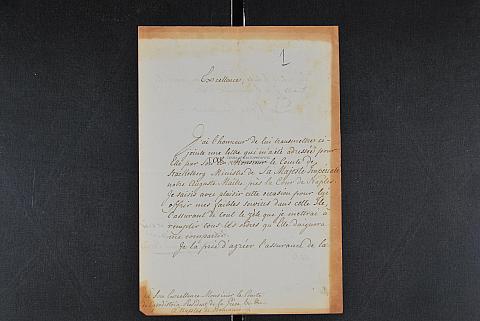 1
Excellence,
J'ai l'honneur de lui transmettre ci-
jointe une lettre qui m'a été adressée pour
Elle par Monsieur le Comte de
Stackelberg Ministre de Sa Majesté Imperiale
notre Auguste Maitre près la Cour de Naples.
Je saisis avec plaisir cette occasion pour lui
offrir mes faibles services dans cette Isle,
l'assurant de tout le zèle que je mettrai à
remplir tous les ordres qu'Elle daignera
me comparter.
Je la prie d'agréer l'assurance de la
Son Excellence Monsieur le Comte
Président de la Grèce
à Naples de Romanie